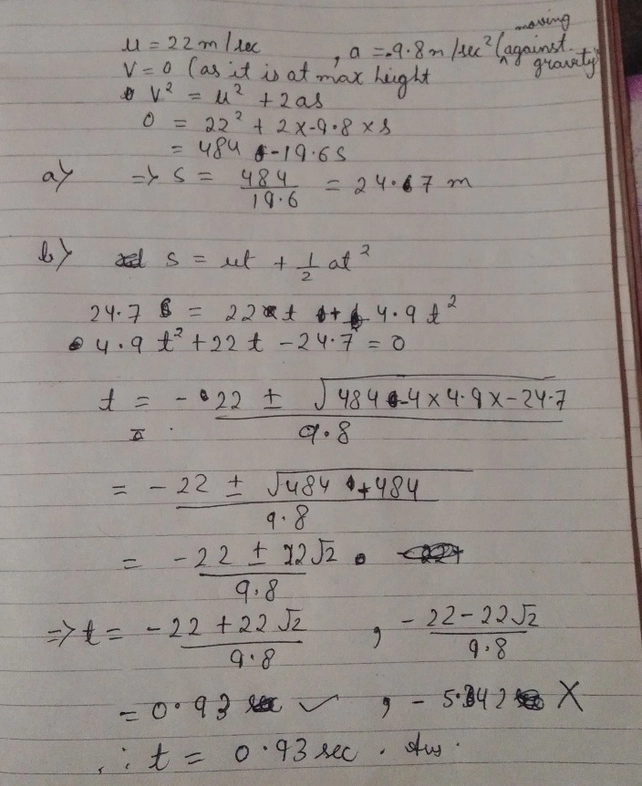 u = 22 m/sec , a = -9.8 m/sec² (moving against gravity)
V = 0 (as it is at max height
V² = u² + 2as
0 = 22² + 2 x -9.8 x s
= 484 - 19.6 s
a) => s = 484/19.6 = 24.67 m
b) s = ut + 1/2 at²
24.7 = 22 t + 4.9 t²
4.9 t² + 22 t - 24.7 = 0
t = -22 ± √484 - 4 x 4.9 x -24.7 / 9.8
= -22 ± √484 + 484 / 9.8
= -22 ± 22√2 / 9.8
=> t = -22 + 22√2 / 9.8 , -22 - 22√2 / 9.8
= 0.93 ✓ , - 5.342 X
∴ t = 0.93 sec . Ans .